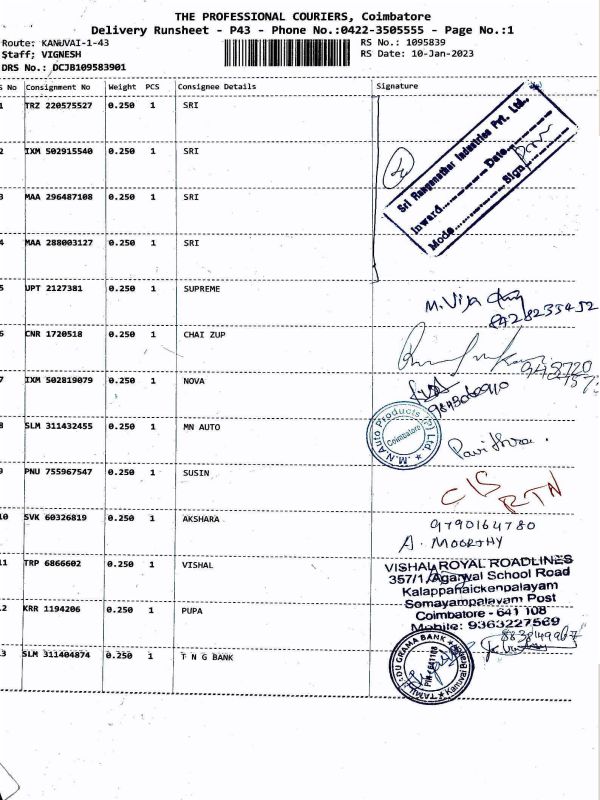 THE PROFESSIONAL COURIERS, Coimbatore
Delivery Runsheet - P43 - Phone No.:0422-3505555 - Page No.:1
Route: KANUVAI-1-43 RS No.: 1095839
Staff; VIGNESH RS Date: 10-Jan-2023
DRS No.: DCJB109583901
S No Consignment No Weight PCS Consignee Details Signature
1 TRZ 220575527 0.250 1 SRI
Sri Ranganathar Industries Pvt. Ltd.,
Inward............Date............
Mode............Sign............
2 IXM 502915540 0.250 1 SRI
3 MAA 296487108 0.250 1 SRI
4 MAA 288003127 0.250 1 SRI
5 UPT 2127381 0.250 1 SUPREME
M. Vija
8428233452
6 CNR 1720518 0.250 1 CHAI ZUP
7 IXM 502819079 0.250 1 NOVA
8 SLM 311432455 0.250 1 MN AUTO
M.N.Auto Products (P) Ltd. Coimbatore
Pavithra.
9 PNU 755967547 0.250 1 SUSIN
C/S
RTN
10 SVK 60326819 0.250 1 AKSHARA
9790164780
A. MOORTHY
11 TRP 6866602 0.250 1 VISHAL
VISHAL ROYAL ROADLINES
357/1, Agarwal School Road
Kalappanaickenpalayam
Somayampalayam Post
Coimbatore - 641 108
Mobile: 9363227569
12 KRR 1194206 0.250 1 PUPA
13 SLM 311404874 0.250 1 T N G BANK
TAMIL NADU GRAMA BANK
PIN-641108